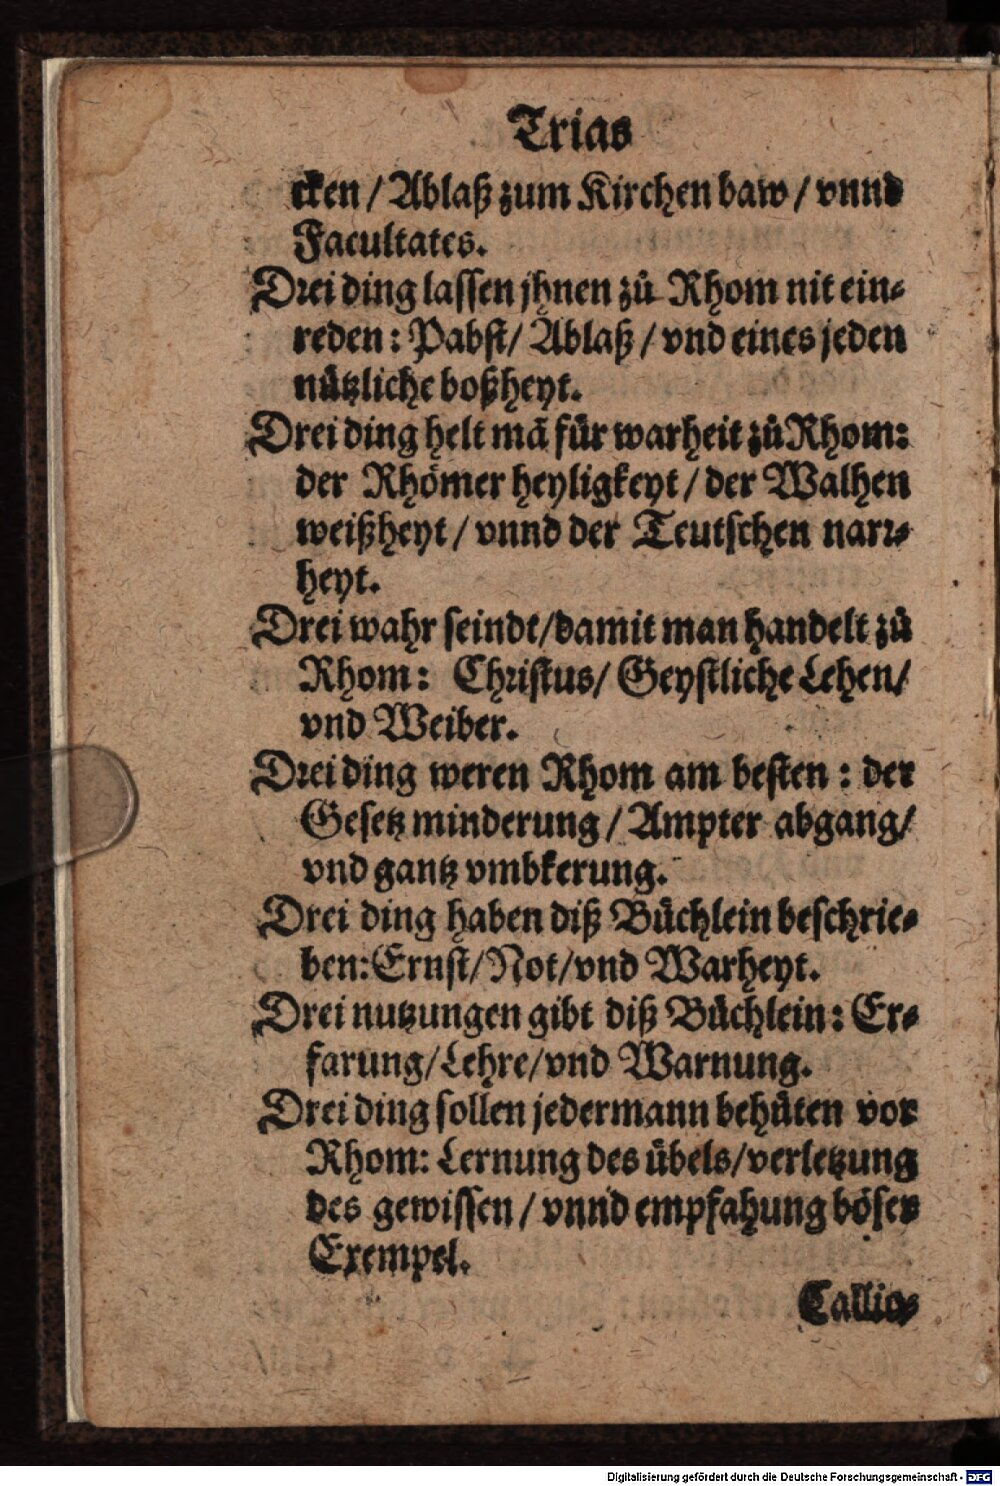 Trias
cken / Ablaß zum Kirchen baw / vnnd
Facultates.
Drei ding lassen jhnen zů Rhom nit ein⸗
reden : Pabst/ Ablaß / vnd eines jeden
nützliche boßheyt.
Drei ding helt mã für warheit zů Rhom:
der Rhömer heyligkeyt / der Walhen
weißheyt / vnnd der Teutschen narr⸗
heyt.
Drei wahr seindt/damit man handelt zů
Rhom : Christus/ Geystliche Lehen/
vnd Weiber.
Drei ding weren Rhom am besten : der
Gesetz minderung / Ampter abgang/
vnd gantz vmbkerung.
Drei ding haben diß Büchlein beschrie⸗
ben:Ernst/Not/vnd Warheyt.
Drei nutzungen gibt diß Büchlein : Er⸗
farung/Lehre/vnd Warnung.
Drei ding sollen jedermann behüten vor
Rhom: Lernung des übels/verletzung
des gewissen / vnnd empfahung böser
Exempel.
Callio⸗
Digitalisierung gefördert durch die Deutsche Forschungsgemeinschaft - DFG